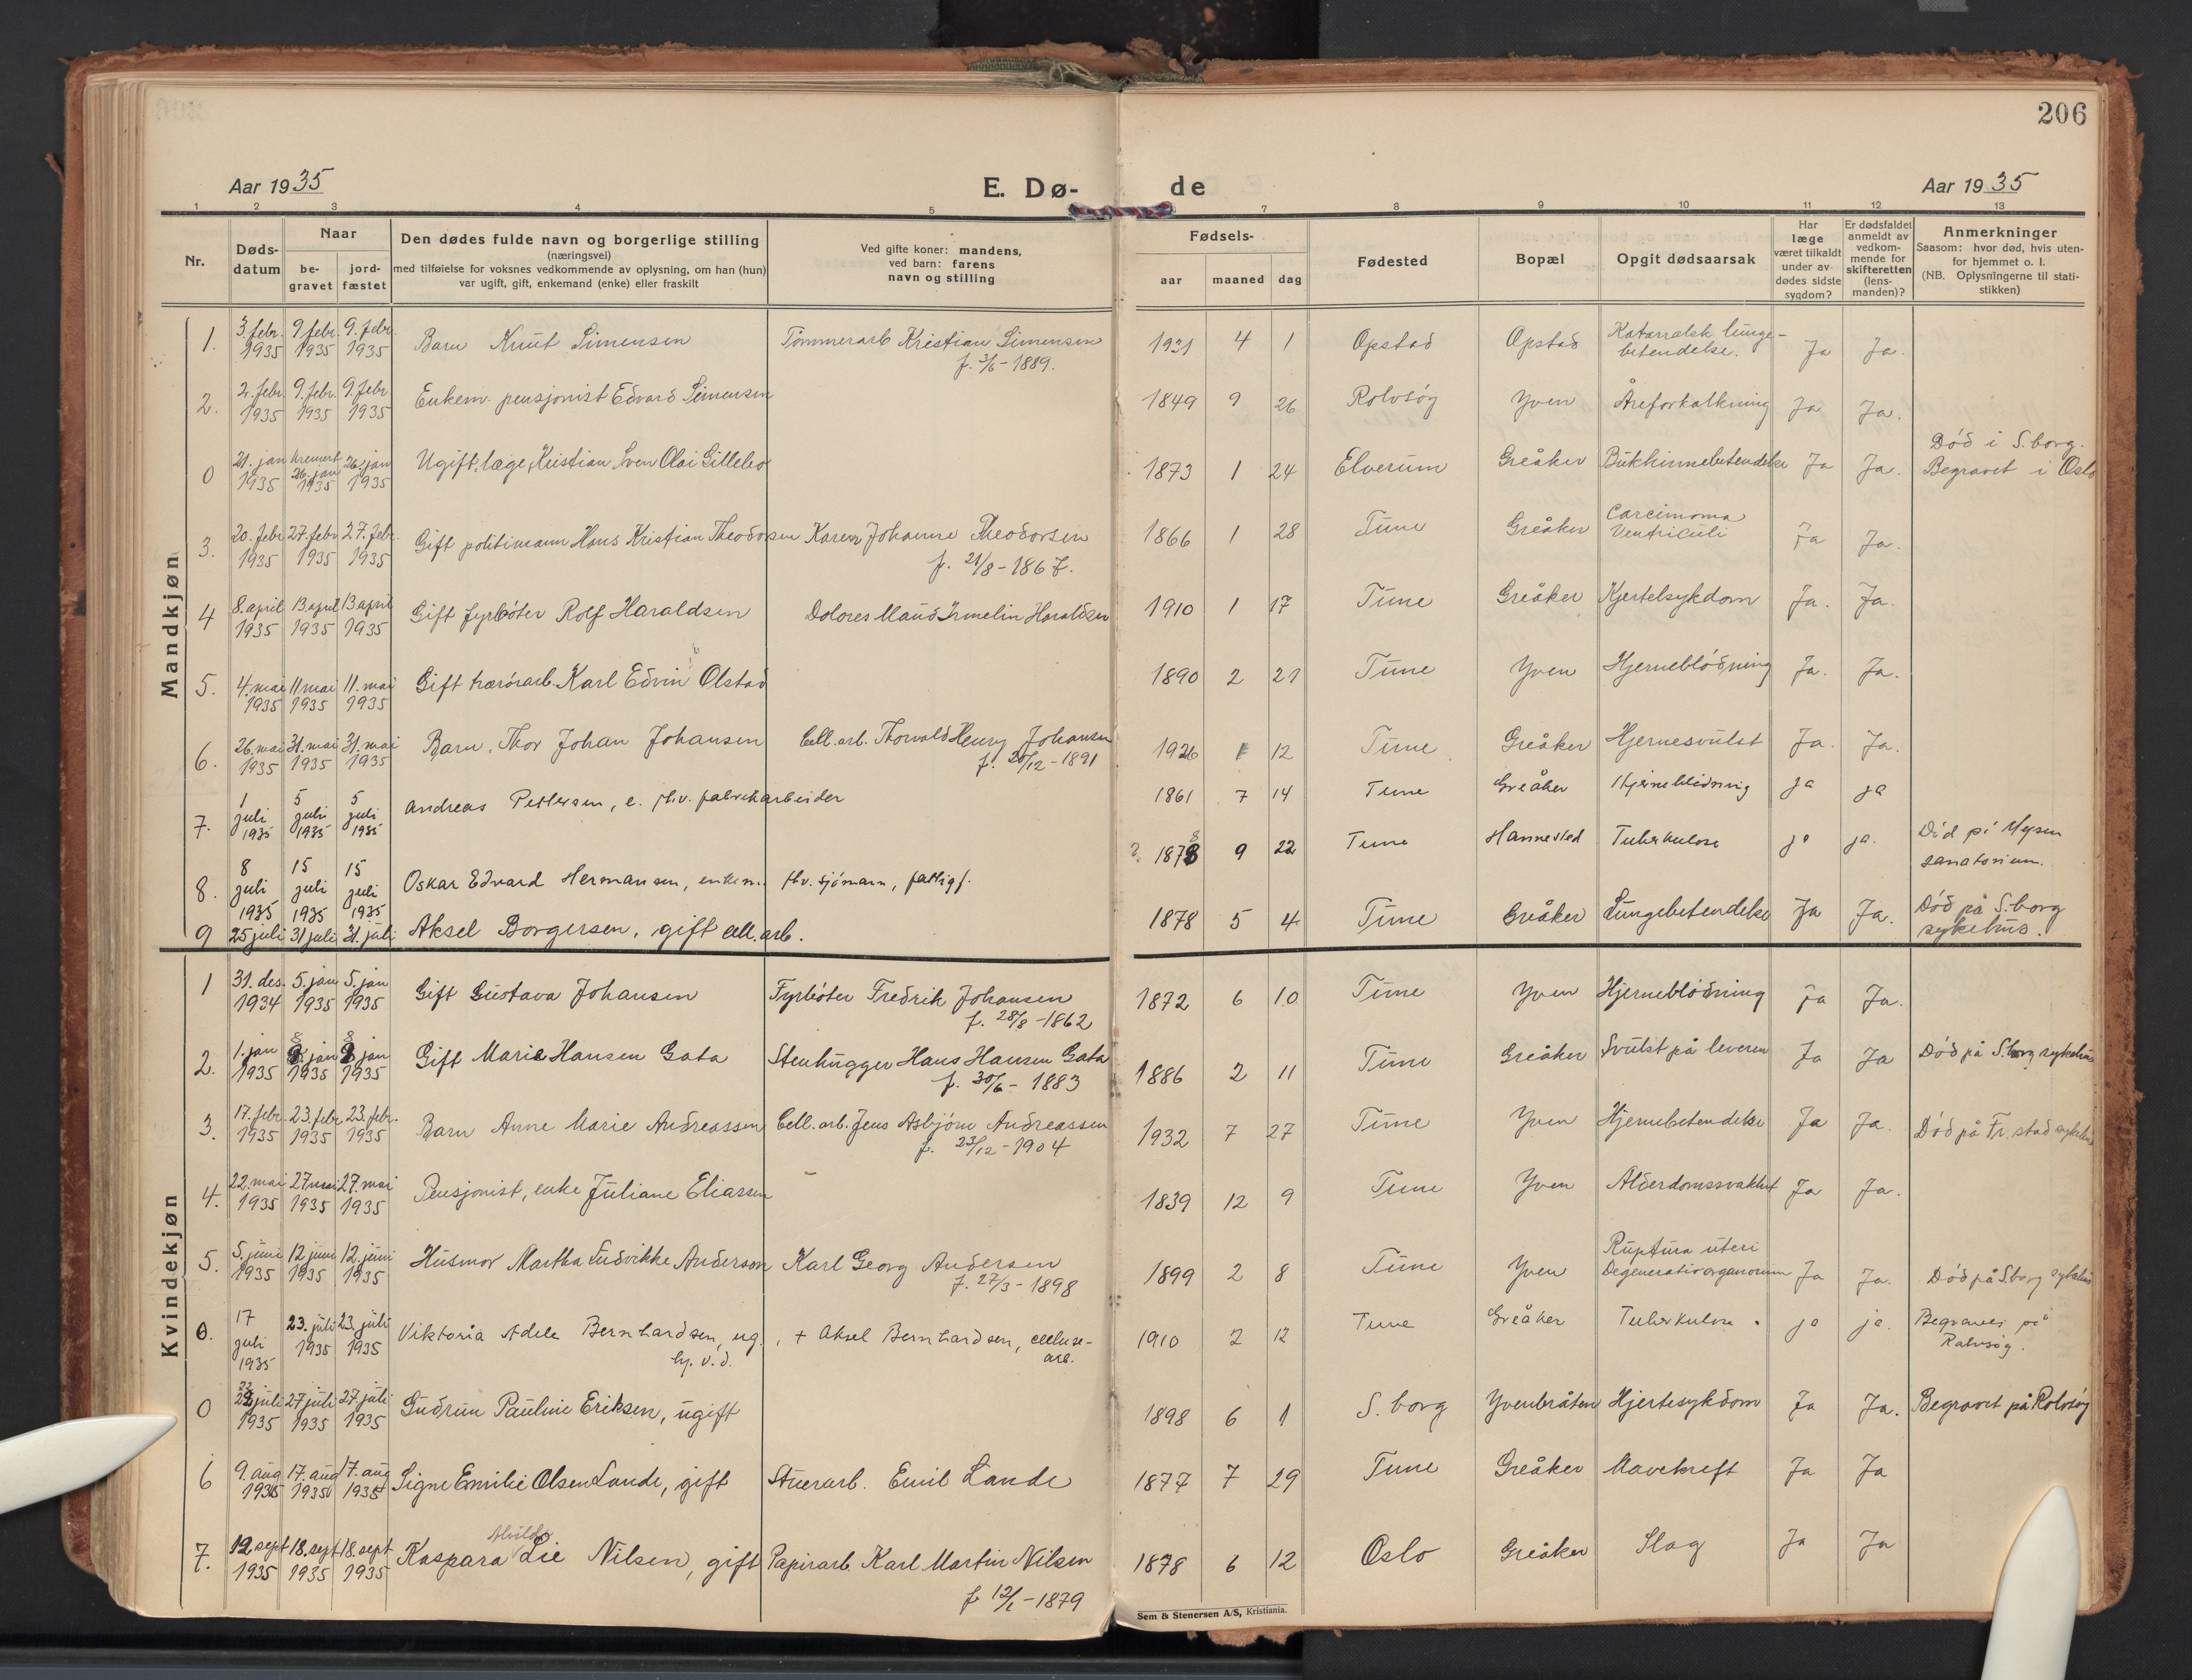 206
Aar 1935
E. Dø-
de
Aar 1935
1 2 3 4 5 7 8 9 10 11 12 13
Nr.
Døds-
datum
Naar
be-
gravet
jord-
fæstet
Den dødes fulde navn og borgerlige stilling
(næringsvei)
med tilføielse for voksnes vedkommende av oplysning, om han (hun)
var ugift, gift, enkemand (enke) eller fraskilt
Ved gifte koner: mandens,
ved barn: farens
navn og stilling
Fødsels-
aar maaned dag
Fødested
Bopæl
Opgit dødsaarsak
Har
læge
været tilkaldt
under av-
dødes sidste
sygdom?
Er dødsfaldet
anmeldt av
vedkom-
mende for
skifteretten
(lens-
manden)?
Anmerkninger
Saasom: hvor død, hvis uten-
for hjemmet o. l.
(NB. Oplysningerne til stati-
stikken)
Mandkjøn
1. 3 febr. 1935 9 febr. 1935 9. febr. 1935 Barn Knut Simensen Tømmerarb Kristian Simensen 1931 4 1 Opstad Opstad Katarralsk lunge- Ja Ja.
f. 3/6-1889. betendelse.
2. 2. febr. 1935 9. febr. 1935 9. febr 1935 Enkem. pensjonist Edvard Simensen 1849 9 26 Rolvsøy Yven Åreforkalkning Ja Ja.
0 21. jan 1935 kremert 26. jan 1935 26. jan 1935 Ugift, læge, Kristian Sven Olai Gillebo 1873 1 24 Elverum Greåker Bukhinnebetendelse Ja Ja. Død i S.borg.
Begravet i Oslo
3. 20. febr 1935 27. febr 1935 27. febr. 1935 Gift politimann Hans Kristian Theodorsen Karen Johanne Theodorsen 1866 1 28 Tune Greåker Carcinoma Ja Ja.
f. 21/8-1867. Ventriculi
4 8. april 1935 13. april 1935 13 april 1935 Gift fyrbøter Rolf Haraldsen Dolores Maud Irmelin Haraldsen 1910 1 17 Tune Greåker Kjertelsykdom Ja. Ja.
5. 4. mai 1935 11 mai 1935 11. mai 1935 Gift Karl Edvin Olstad 1890 2 21 Tune Yven Hjerneblødning Ja. Ja.
6. 26. mai 1935 31. mai 1935 31. mai 1935 Barn, Thor Johan Johansen Cell. arb. Thorvald Henry Johansen 1926 12 Tune Greåker Hjernesvulst Ja. Ja.
f. 20/12-1891
7. 1 juli 1935 5 juli 1935 5 juli 1935 Andreas Pettersen, e. fhv. fabrikarbeider 1861 7 14 Tune Greåker Hjerneblødning ja ja
8. 8 juli 1935 15 juli 1935 15 juli 1935 Oskar Edvard Hermansen, enkem. fhv. sjømann, fattigf. 1878 9 22 Tune Hannestad Tuberkulose ja ja. Død på Mysen
sanatorium.
9 25 juli 31 juli 31. juli Aksel Borgersen, gift cell. arb. 1878 5 4 Tune Greåker Lungebetendelse Ja Ja. Død på S.borg
sykehus.
Kvindekjøn
1 31. des. 1934 5. jan 1935 5. jan 1935 Gift Gustava Johansen Fyrbøter Fredrik Johansen 1872 6 10 Tune Yven Hjerneblødning Ja Ja.
f. 28/8-1862
2. 1. jan 1935 8. jan 1935 8 jan 1935 Gift Marie Hansen Gata Stenhugger Hans Hansen Gata 1886 2 11 Tune Greåker Svulst på leveren Ja Ja Død på S.borg sykehus
f. 30/6-1883
3. 17. febr. 1935 23. febr 1935 23. febr. 1935 Barn Anne Marie Andreassen Cell. arb. Jens Asbjørn Andreassen 1932 7 27 Tune Yven Hjernebetendelse Ja Ja. Død på Fr.stad sykehus
f. 23/12-1904
4. 22. mai 1935 27 mai 1935 27. mai 1935 Pensjonist, enke Juliane Eliassen - 1839 12 9 Tune Yven Alderdomssvakhet Ja Ja.
5. 5. juni 1935 12 juni 1935 12. juni 1935 Husmor Martha Ludvikke Anderson Karl Georg Andersen 1899 2 8 Tune Yven Ruptura uteri Ja Ja. Død på S.borg sykehus
f. 27/3-1898 Degeneratio organorum
0. 17 juli 1935 23. juli 1935 23. juli 1935 Viktoria Adele Bernhardsen, ug., + Aksel Bernhardsen, cellulose- 1910 2 12 Tune Greåker Tuberkulose ja ja. Begravet på
hj. v. d. arb. Rolvsøy.
0 22 juli 1935 27 juli 1935 27. juli 1935 Gudrun Pauline Eriksen, ugift 1898 6 1 S.borg Yvenbråten Hjertesykdom Ja Ja. Begravet på Rolvsøy
6 9. aug 1935 17. aug 1935 17. aug 1935 Signe Emilie Olsen Lande, gift Stuerarb. Emil Lande 1877 7 29 Tune Greåker Mavekreft Ja Ja
7. 12. sept 1935 18. sept 1935 18. sept 1935 Kaspara Lie Nilsen, gift Papirarb. Karl Martin Nilsen 1878 6 12 Oslo Greåker Slag Ja Ja
f. 12/1-1879
Sem & Stenersen A/S, Kristiania.